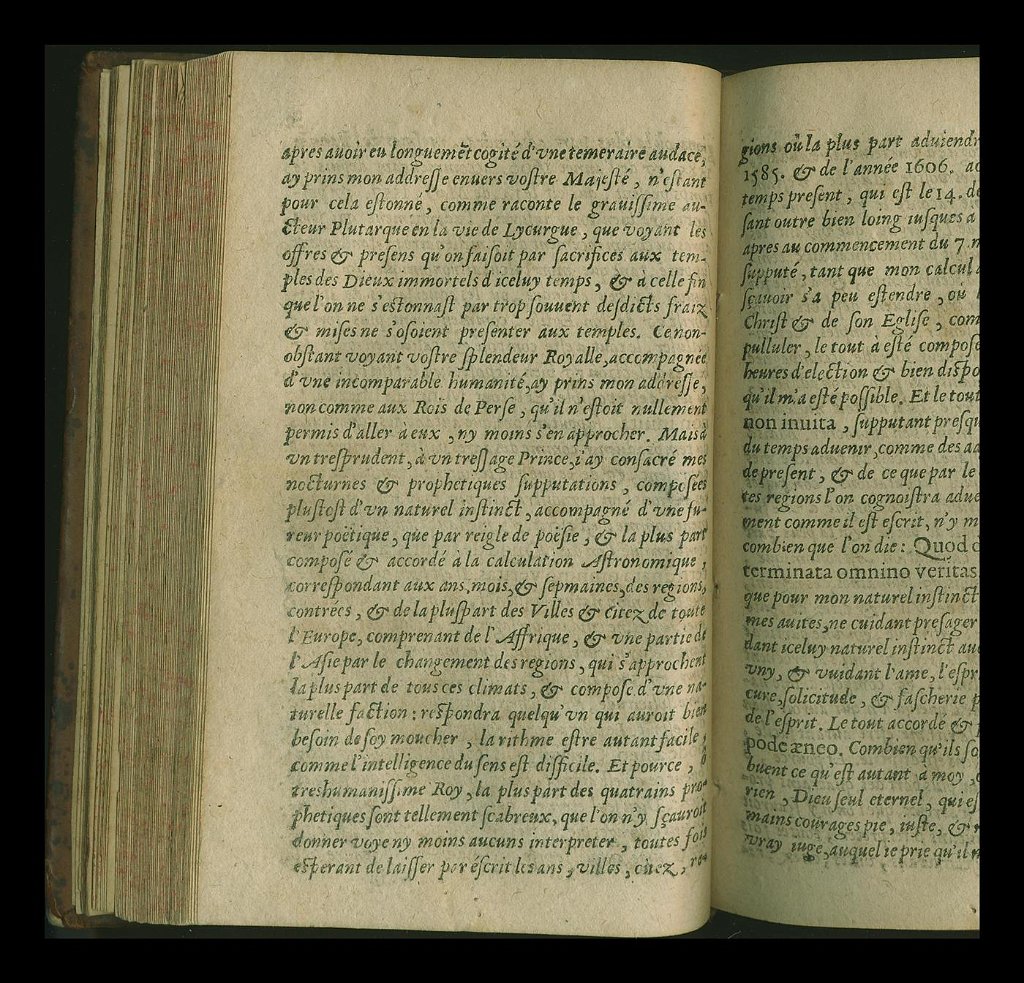 apres auoir eu longuemẽt cogité d'vne temeraire audace,
ay prins mon addresse enuers vostre Majesté, n'estant
pour cela estonné, comme raconte le grauissime au-
cteur Plutarque en la vie de Lycurgue, que voyant les
offres & presens qu'on faisoit par sacrifices aux tem-
ples des Dieux immortels d'iceluy temps, & à celle fin
que l'on ne s'estonnast par trop souuent desdicts fraiz
& mises ne s'osoient presenter aux temples. Ce non-
obstant voyant vostre splendeur Royalle, accompagnee
d'vne incomparable humanité, ay prins mon addresse,
non comme aux Rois de Perse, qu'il n'estoit nullement
permis d'aller à eux, ny moins s'en approcher. Mais à
vn tresprudent, à vn tressage Prince, i'ay consacré mes
nocturnes & prophetiques supputations, composees
plustost d'vn naturel instinct, accompagné d'vne fu-
reur poëtique, que par reigle de poësie, & la plus part
composé & accordé à la calculation Astronomique,
correspondant aux ans, mois, & sepmaines, des regions,
contrées, & de la pluspart des Villes & Citez de toute
l'Europe, comprenant de l'Affrique, & vne partie de
l'Asie par le changement des regions, qui s'approchent
la plus part de tous ces climats, & composé d'vne na-
turelle faction: respondra quelqu'vn qui auroit bien
besoin de soy moucher, la rithme estre autant facile,
comme l'intelligence du sens est difficile. Et pource, ô
treshumanissime Roy, la plus part des quatrains pro-
phetiques sont tellement scabreux, que l'on n'y sçauroit
donner voye ny moins aucuns interpreter, toutes fois
esperant de laisser par escrit les ans, villes, citez, re-
gions où la plus part aduiendr
1585. & de l'année 1606. ac
temps present, qui est le 14. de
sant outre bien loing iusques a
apres au commencement du 7. m
supputé, tant que mon calcul a
sçauoir s'a peu estendre, où l
Christ & de son Eglise, com
pulluler, le tout a esté compose
heures d'election & bien dispo
qu'il m'a esté possible. Et le tout
non inuita, supputant presqu
du temps aduenir, comme des aa
de present, & de ce que par le
tes regions l'on cognoistra adue
ment comme il est escrit, n'y m
combien que l'on die: Quod d
terminata omnino veritas
que pour mon naturel instinct
mes auites, ne cuidant presager
dant iceluy naturel instinct aue
vny, & vuidant l'ame, l'espr
cure, solicitude, & fascherie p
de l'esprit. Le tout accordé &
pode æneo. Combien qu'ils so
buent ce qu'est autant à moy,
rien, Dieu seul eternel, qui es
mains courages pie, iuste, & 
vray iuge, auquel ie prie qu'il